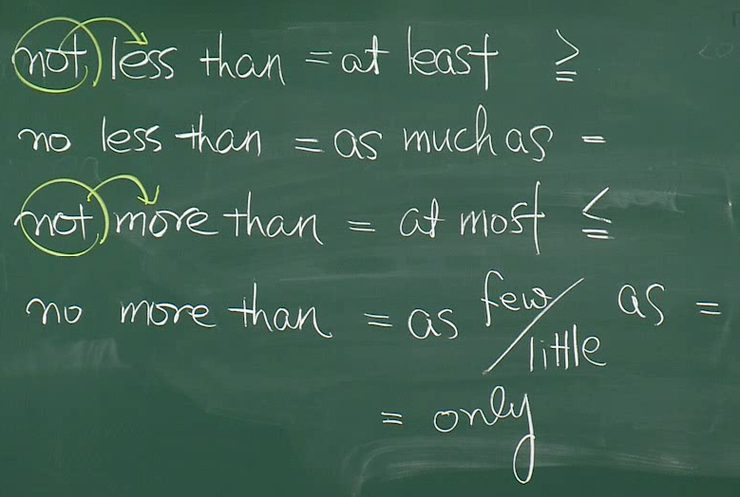 not less than = at least ≧
no less than = as much as =
not more than = at most ≦
no more than = as few/little as =
= only